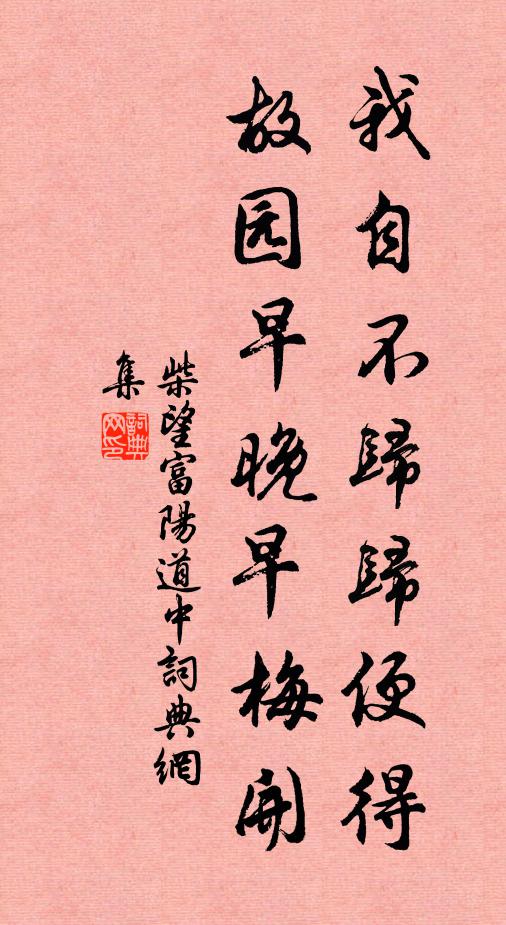 我自不歸歸便得
故园早晚早梅開
柴望富陽道中詞典網
集
詞典
网印